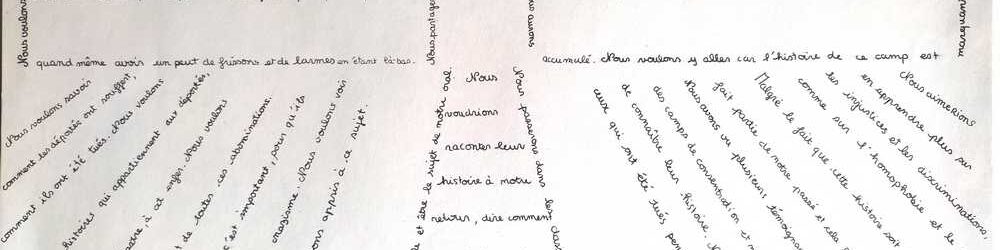 Nous voulons
quand même avoir un peut de frissons et de larmes en étant là-bas.
Nous voulons savoir
comment les déportés ont souffert,
comment ils ont été tués. Nous voulons
histoires qui appartiennent aux déportés,
à cet enfer. Nous voulons
de toutes ces abominations.
c'est important, pour qu'ils
nazisme. Nous voulons voir
ons appris à ce sujet.
Nous partage
et être le sujet de notre oral
Nous
voudrions
raconter leur
histoire à notre
retour, dire comment
Nous passerons dans les
nous aurons
accumulé. Nous voulons y aller car l'histoire de ce camp est
ceux qui ont été tués pen
de connaître leur histoire. N
des camps de concentration et
Nous avons vu plusieurs témoigna
fait partie de notre passé et cela
Malgré le fait que cette histoire soit
comme sur l'homophobie et le
les injustices et les discriminations,
en apprendre plus sur
Nous aimerions